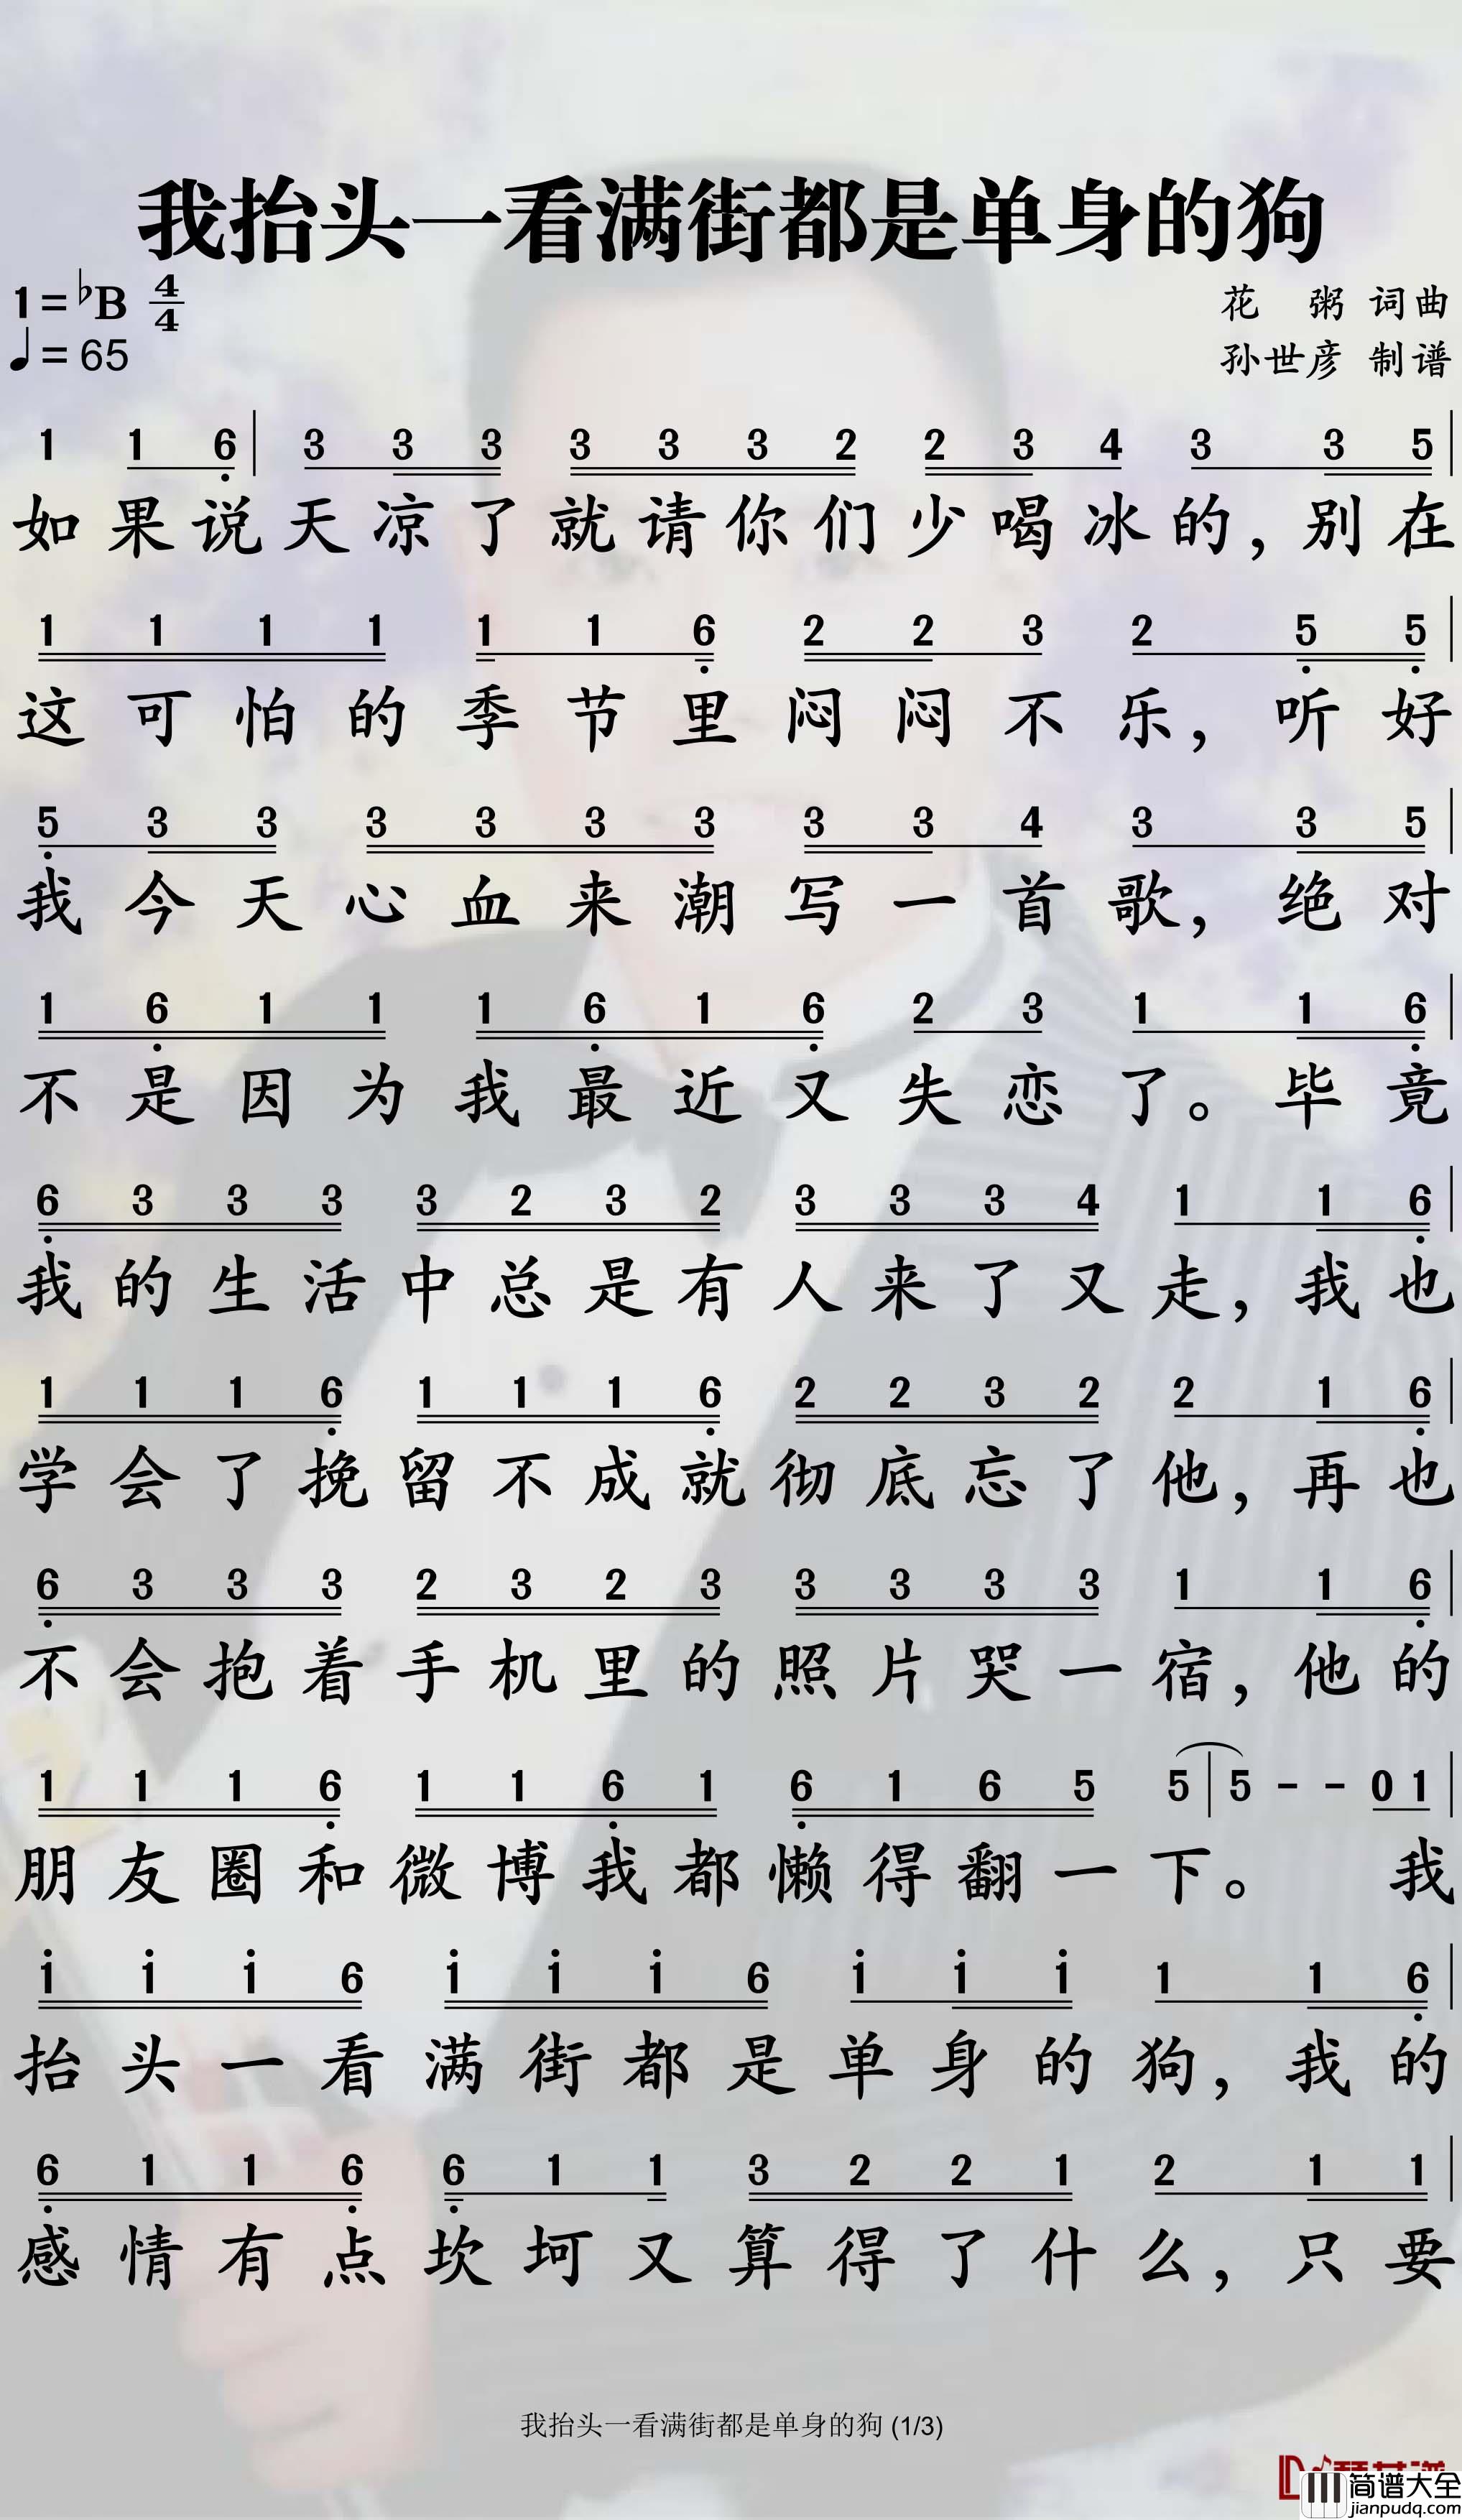 我抬头一看满街都是单身的狗
1=♭B 4/4
♩=65
花 粥 词曲
孙世彦 制谱
1 1 6 | 3 3 3 3 3 3 2 2 3 4 3 3 5 |
如果说天凉了就请你们少喝冰的，别在
1 1 1 1 1 1 6 2 2 3 2 5 5 |
这可怕的季节里闷闷不乐，听好
5 3 3 3 3 3 3 3 3 4 3 3 5 |
我今天心血来潮写一首歌，绝对
1 6 1 1 1 6 1 6 2 3 1 1 6 |
不是因为我最近又失恋了。毕竟
6 3 3 3 3 2 3 2 3 3 3 4 1 1 6 |
我的生活中总是有人来了又走，我也
1 1 1 6 1 1 1 6 2 2 3 2 2 1 6 |
学会了挽留不成就彻底忘了他，再也
6 3 3 3 2 3 2 3 3 3 3 3 1 1 6 |
不会抱着手机里的照片哭一宿，他的
1 1 1 6 1 1 6 1 6 1 6 5 5 | 5 - - 0 1 |
朋友圈和微博我都懒得翻一下。 我
i i i 6 i i i 6 i i i 1 1 6 |
抬头一看满街都是单身的狗，我的
6 1 1 6 6 1 1 3 2 2 1 2 1 1 |
感情有点坎坷又算得了什么，只要
我抬头一看满街都是单身的狗 (1/3)
简谱大全
jianpudq.com